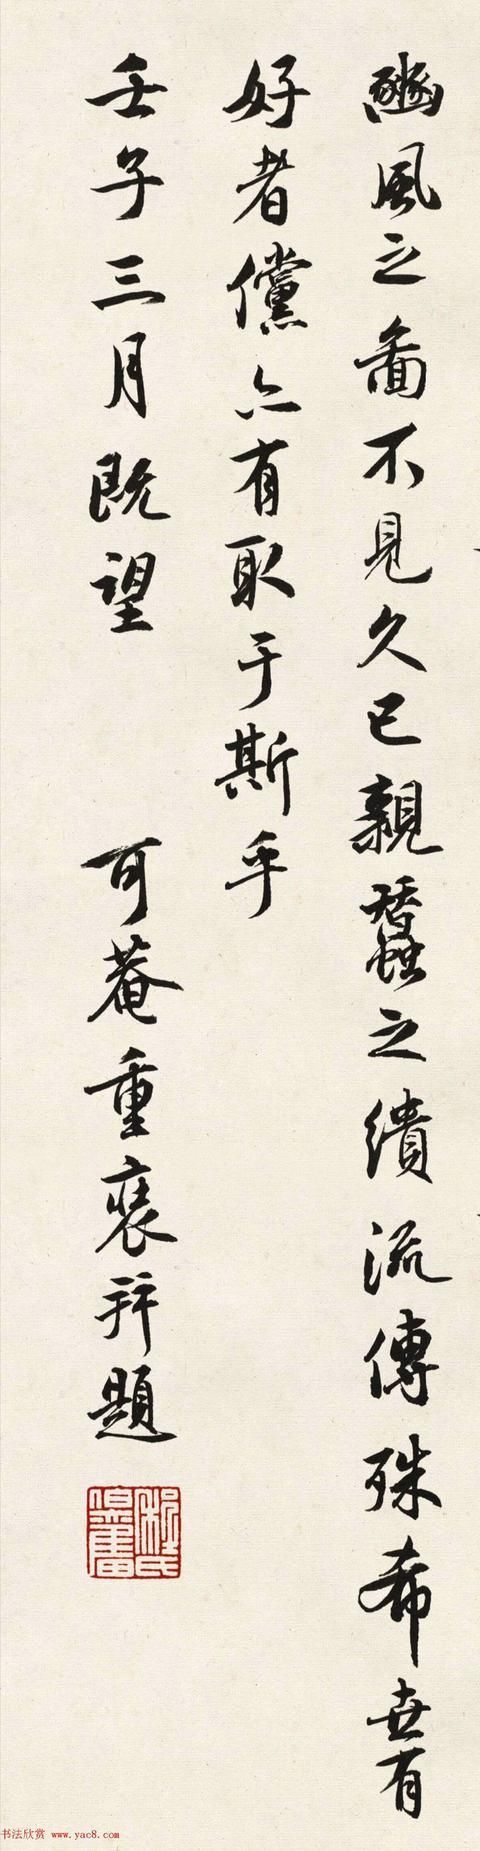 豳風之啚不見久已親蠶之繢流傳殊希世有
好者儻亦有取于斯乎
壬子三月既望 可菴重裝并題
书法欣赏 www.yac8.com